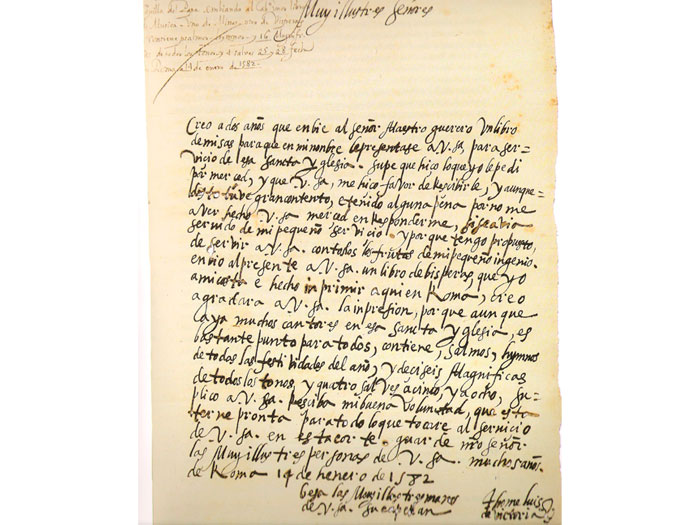 Muy illustres señores
Creo a dos años que enbie al señor Maestro guerero un libro
de misas para que en mi nonbre le presentase a V. sa. para ser=
vicio de esa sancta yglesia. supe que hiço lo que yo le pedi
por merced, y que V. sa, me hiço favor de Rescibirle, y aunque
desto tuve gran contento, e tenido alguna pena por no me
aver hecho V. sa merced en Responderme, si se avia
servido de mi pequeño servicio. y porque tengo proposito,
de servir a V. sa. con todos los frutos de mi pequeño ingenio.
envio al presente a V. sa. un libro de bisperas, que yo
a mi costa e hecho inprimir aqui en Roma, creo
agradara a V. sa. la inpresion, por que aunque
aya muchos cantores en esa sancta yglesia, es
bastante punto para todos, contiene, salmos, hymnos
de todas las festividades del año, y deciseis Magnificas
de todos los tonos, y quatro salves a cinco, y a ocho, su=
plico a V. sa. Resciba mi buena Voluntad, que esta
terne pronta para todo lo que tocare al servicio
de V. sa. en esta corte. guarde nro señor
las Muy illustres personas de V. sa. muchos años.
de Roma 14 de henero de 1582
besa las Muy illustres manos
de V. sa. su capellan
Thome luis
de victoria